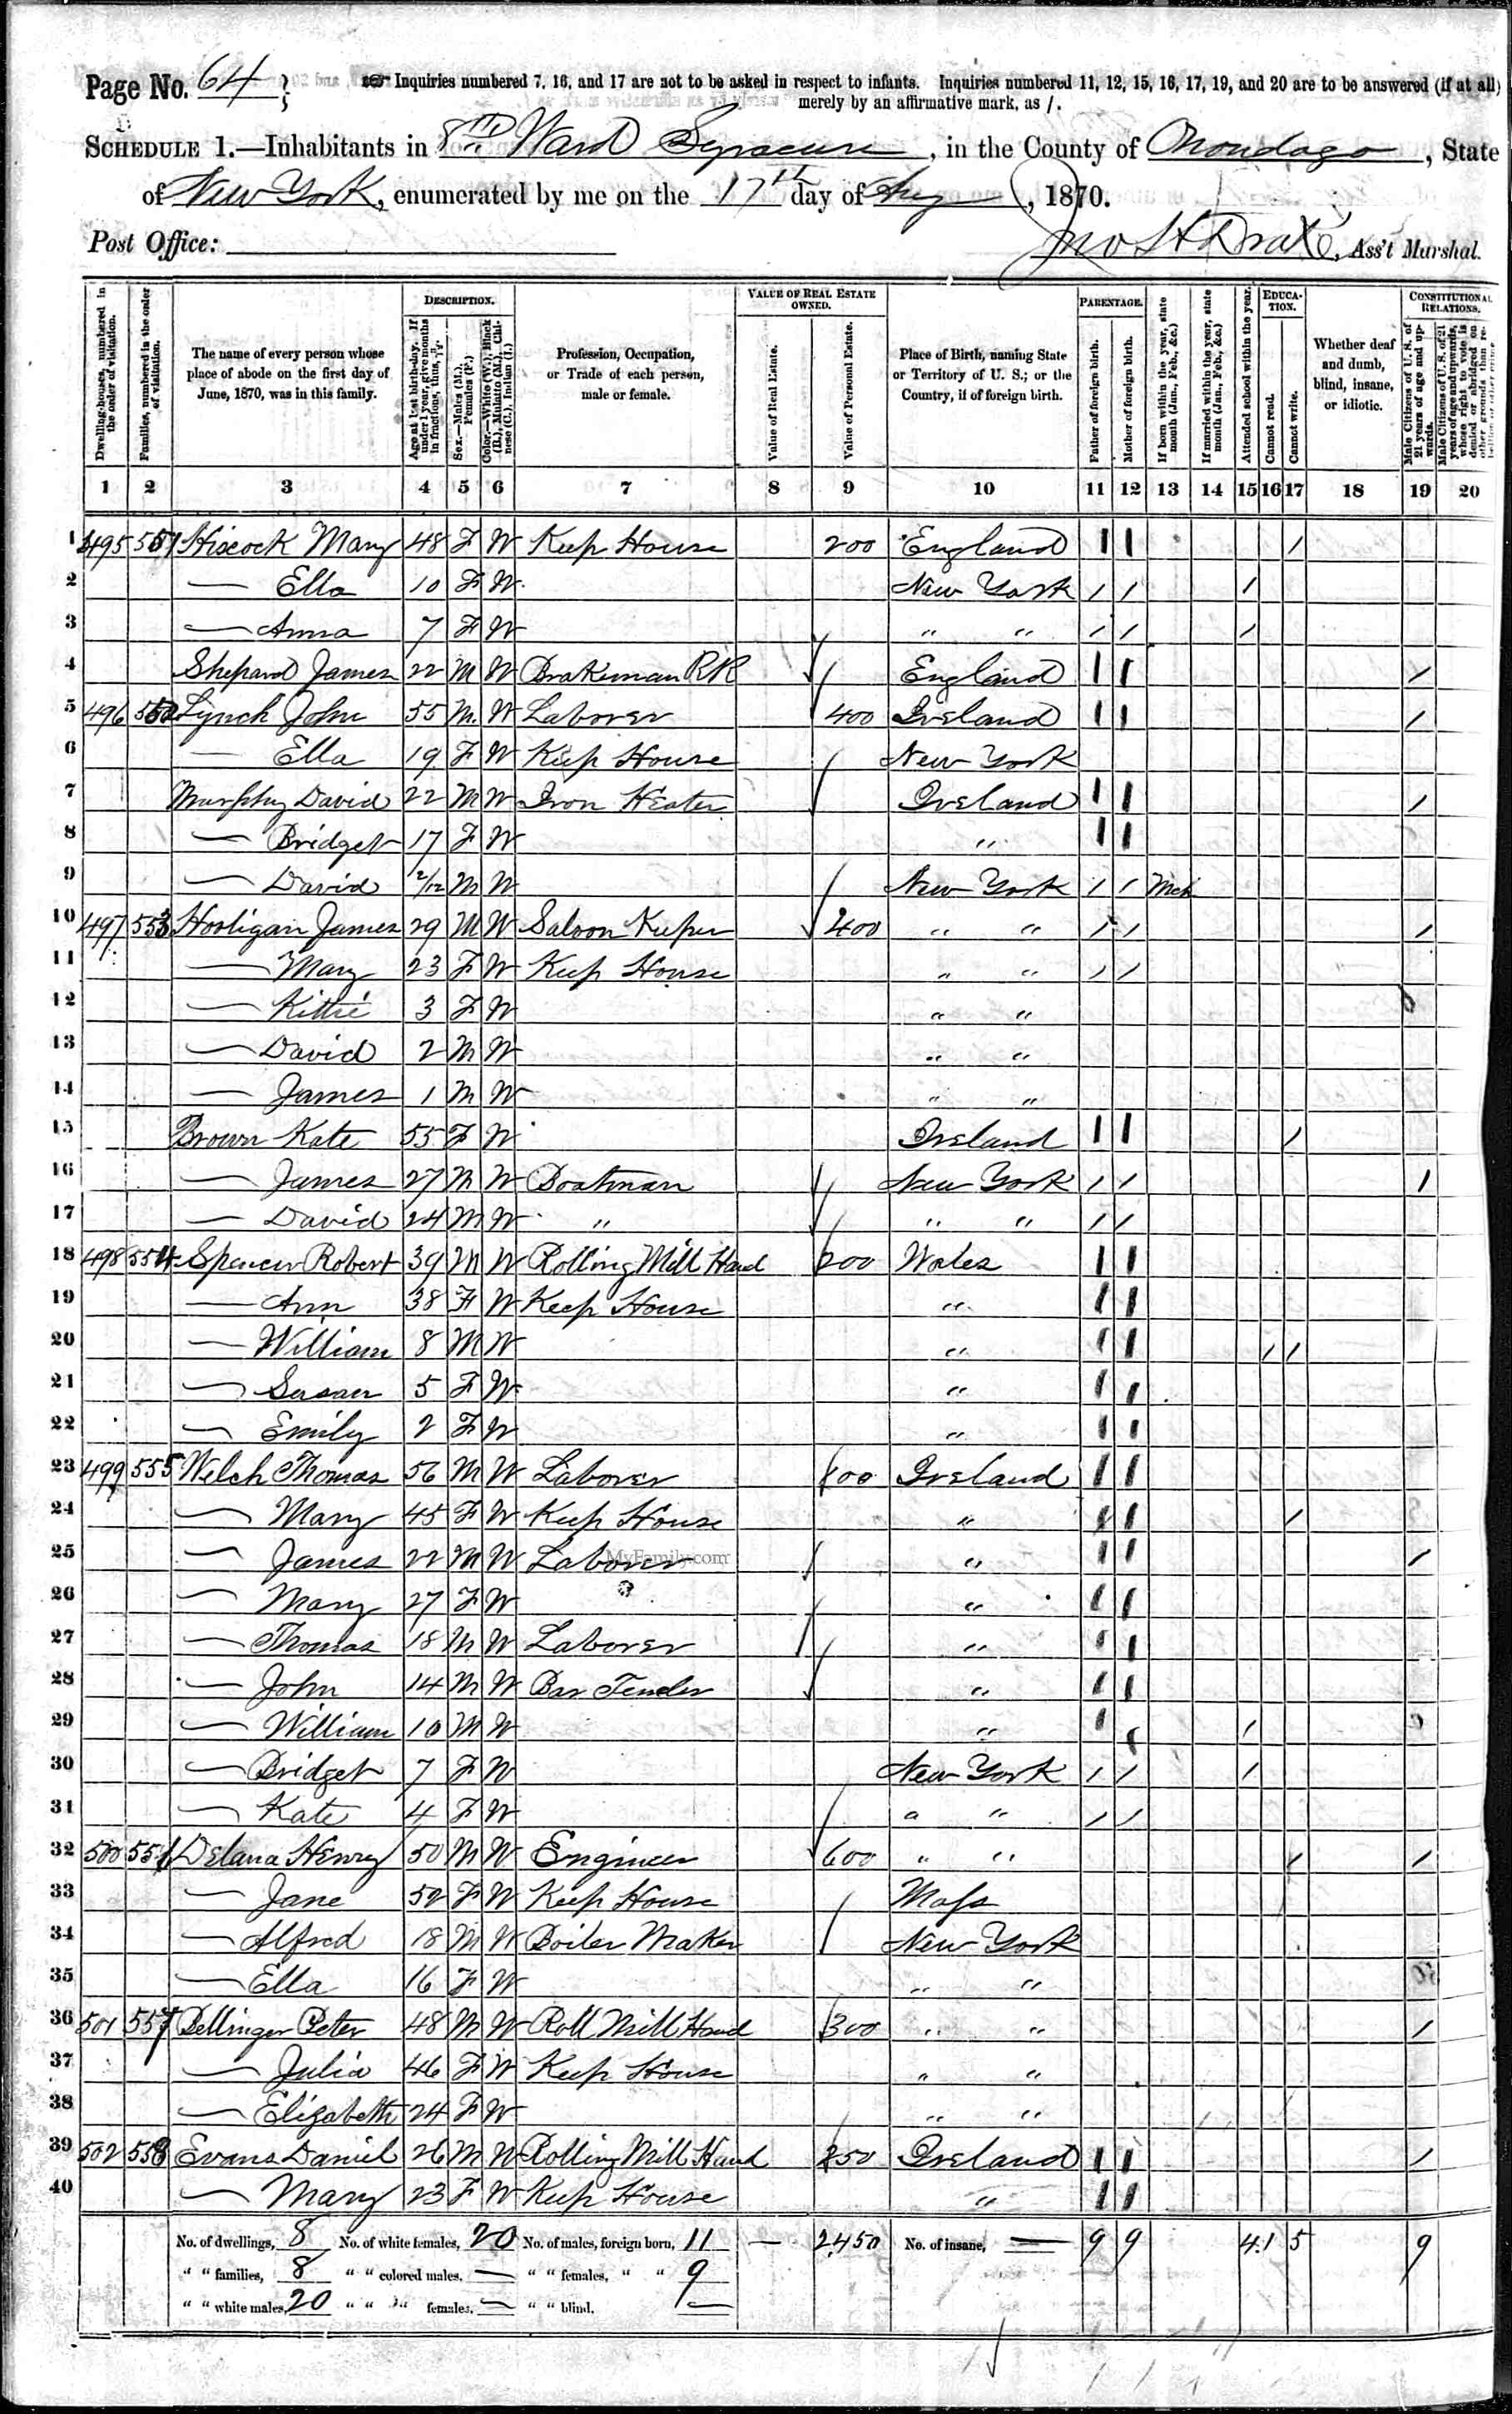 Page No. 64
Inquiries numbered 7, 16, and 17 are not to be asked in respect to infants. Inquiries numbered 11, 12, 15, 16, 17, 19, and 20 are to be answered (if at all)
merely by an affirmative mark, as /.
SCHEDULE 1.—Inhabitants in 8th Ward Syracuse, in the County of Onondaga, State
of New York, enumerated by me on the 17th day of Aug, 1870.
Post Office: Jno H Drake, Ass't Marshal.
Dwelling-houses, numbered in the order of visitation.
Families, numbered in the order of visitation.
The name of every person whose place of abode on the first day of June, 1870, was in this family.
DESCRIPTION.
Age at last birth-day. If under 1 year, give months in fractions, thus, 3/12.
Sex.—Males (M.), Females (F.)
Color.—White (W.), Black (B.), Mulatto (M.), Chinese (C.), Indian (I.)
Profession, Occupation, or Trade of each person, male or female.
VALUE OF REAL ESTATE OWNED.
Value of Real Estate.
Value of Personal Estate.
Place of Birth, naming State or Territory of U. S.; or the Country, if of foreign birth.
PARENTAGE.
Father of foreign birth.
Mother of foreign birth.
If born within the year, state month (Jan., Feb., &c.)
If married within the year, state month (Jan., Feb., &c.)
Attended school within the year.
EDUCATION.
Cannot read.
Cannot write.
Whether deaf and dumb, blind, insane, or idiotic.
CONSTITUTIONAL RELATIONS.
Male Citizens of U. S. of 21 years of age and upwards.
Male Citizens of U. S. of 21 years of age and upwards, whose right to vote is denied or abridged on other grounds than
1 2 3 4 5 6 7 8 9 10 11 12 13 14 15 16 17 18 19 20
1 495 551 Hiscock Mary 48 F W Keep House 200 England 1 1 /
2 — Ella 10 F W New York / / /
3 — Anna 7 F W " " / / /
4 Shepard James 22 M W Brakeman RR England 1 1 /
5 496 552 Lynch John 55 M W Laborer 400 Ireland 1 1 /
6 — Ella 19 F W Keep House New York
7 Murphy David 22 M W Iron Heater Ireland 1 1 /
8 — Bridget 17 F W " 1 1
9 — David 2/12 M W New York / / Mch
10 497 553 Hooligan James 29 M W Saloon Keeper 400 " " / / /
11 — Mary 23 F W Keep House " " / /
12 — Kittie 3 F W " "
13 — David 2 M W " "
14 — James 1 M W " "
15 Brown Kate 55 F W Ireland 1 1 /
16 — James 27 M W Boatman New York / / 1
17 — David 24 M W " " " / /
18 498 554 Spencer Robert 39 M W Rolling Mill Hand 200 Wales 1 1
19 — Ann 38 F W Keep House " 1 1
20 — William 8 M W " 1 1 / /
21 — Susan 5 F W " 1 1
22 — Emily 2 F W " 1 1
23 499 555 Welch Thomas 56 M W Laborer 100 Ireland 1 1
24 — Mary 45 F W Keep House " 1 1 /
25 — James 22 M W Laborer " 1 1 /
MyFamily.com
26 — Mary 27 F W " 1 1
27 — Thomas 18 M W Laborer " 1 1
28 — John 14 M W Bar Tender " 1 1
29 — William 10 M W " 1 1 /
30 — Bridget 7 F W New York / / /
31 — Kate 4 F W " " / /
32 500 556 Delana Henry 50 M W Engineer 600 " " / /
33 — Jane 52 F W Keep House Mass
34 — Alfred 18 M W Boiler Maker New York
35 — Ella 16 F W " "
36 501 557 Dellinger Peter 48 M W Roll Mill Hand 300 " " /
37 — Julia 46 F W Keep House " "
38 — Elizabeth 24 F W " "
39 502 558 Evans Daniel 26 M W Rolling Mill Hand 250 Ireland 1 1 /
40 — Mary 23 F W Keep House " 1 1
No. of dwellings, 8 No. of white females, 20 No. of males, foreign born, 11 — 2450 No. of insane, — 9 9 4 1 5 9
" " families, 8 " " colored males, — " " females, " " 9
" " white males, 20 " " " females, — " " blind, —